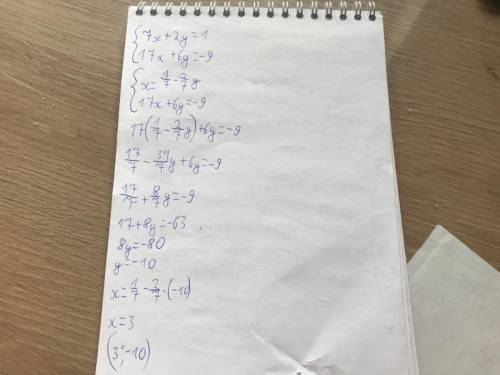 {7x+2y=1
{17x+6y=-9
{x=1/7-2/7y
{17x+6y=-9
17(1/7-2/7y)+6y=-9
17/7-34/7y+6y=-9
17/7+8/7y=-9
17+8y=-63
8y=-80
y=-10
x=1/7-2/7·(-10)
x=3
(3;-10)